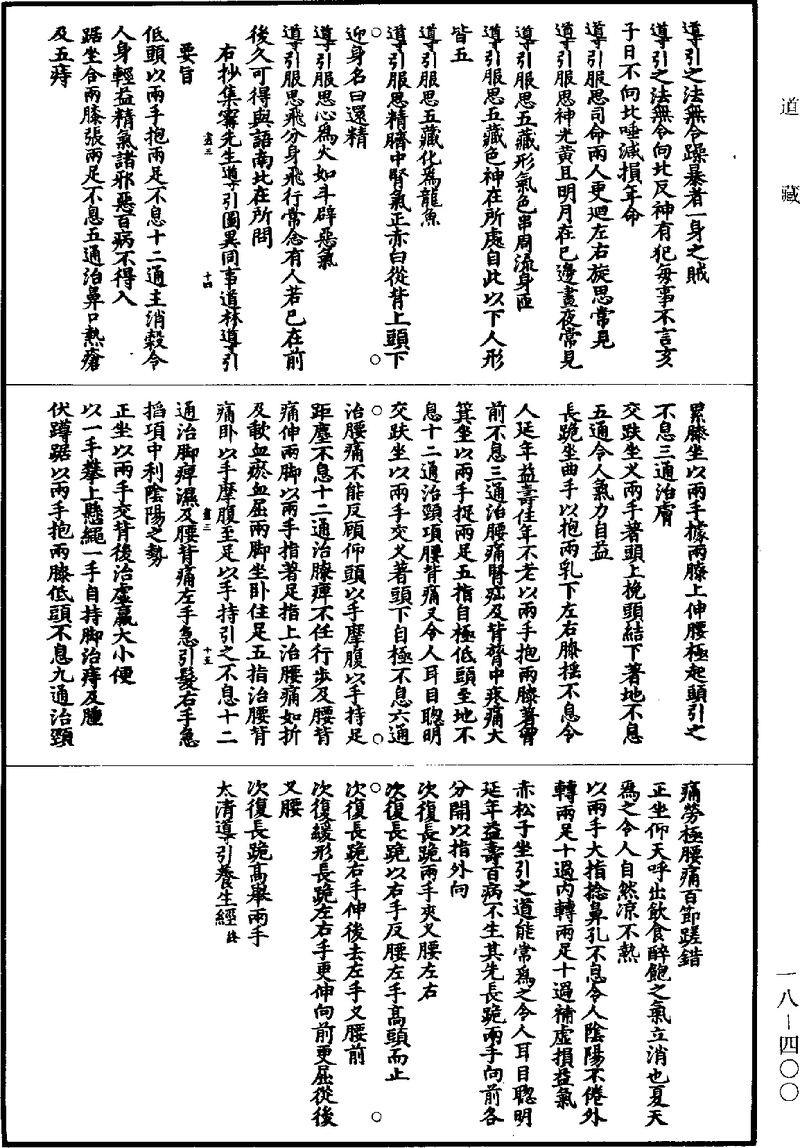 道藏
導引之法無令躁暴者一身之賊
導引之法無令向北反神有犯每事不言亥
子日不向北唾減損年命
導引服思司命兩人更迴左右旋思常見
導引服思神光黃且明月在已邊晝夜常見
導引服思五藏形氣色串周流身匝
導引服思五藏色神在所處自此以下人形
皆五
導引服思五藏化為龍魚
導引服思精臍中腎氣正赤白從背上頭下
迎身名曰還精
導引服思心為火如斗辟惡氣
導引服思飛分身飛行常念有人若已在前
後久可得與語南北在所問
右抄集甯先生導引圖異同事道林導引
盡三 十四
要旨
低頭以兩手抱兩足不息十二通主消穀令
人身輕益精氣諸邪惡百病不得入
踞坐合兩膝張兩足不息五通治鼻口熱瘡
及五痔
累膝坐以兩手據兩膝上伸腰極起頭引之
不息三通治膚
交趺坐叉兩手著頭上挽頭結下著地不息
五通令人氣力自益
長跪坐曲手以抱兩乳下左右膝搖不息令
人延年益壽住年不老以兩手抱兩膝著胷
前不息三通治腰痛腎疝及背膂中疼痛大
箕坐以兩手捉兩足五指自極低頭至地不
息十二通治頸項腰背痛又令人耳目聰明
交趺坐以兩手交叉著頭下自極不息六通
治腰痛不能反顧仰頭以手摩腹以手持足
距塵不息十二通治膝痺不任行步及腰背
痛伸兩脚以兩手指著足指上治腰痛如折
及欬血瘀血屈兩脚坐卧住足五指治腰背
痛卧以手摩腹至足以手持引之不息十二
盡三 十五
通治脚痺濕及腰背痛左手急引髮右手急
搯項中利陰陽之勢
正坐以兩手交背後治虛羸大小便
以一手攀上懸繩一手自持脚治痔及腫
伏蹲踞以兩手抱兩膝低頭不息九通治頸
痛勞極腰痛百節蹉錯
正坐仰天呼出飲食醉飽之氣立消也夏天
為之令人自然凉不熱
以兩手大指捻鼻孔不息令人陰陽不倦外
轉兩足十過內轉兩足十過補虛損益氣
赤松子坐引之道能常為之令人耳目聰明
延年益壽百病不生其先長跪兩手向前各
分開以指外向
次復長跪兩手夾叉腰左右
次復長跪以右手反腰左手高頭而止
次復長跪右手伸後去左手叉腰前
次復緩形長跪左右手更伸向前更屈從後
叉腰
次復長跪高舉兩手
太清導引養生經終
一八－四〇〇